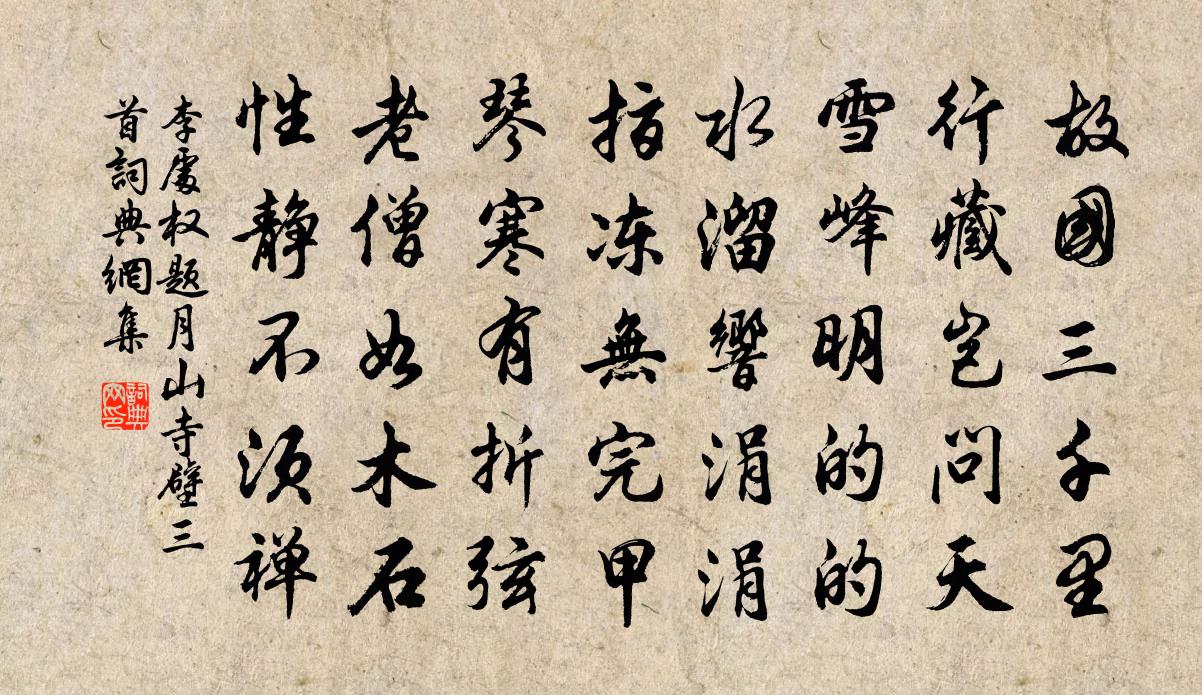 故國三千里
行藏豈問天
雪峰明的的
水溜響涓涓
指冻無完甲
琴寒有折弦
老僧如木石
性静不须禅
李處权题月山寺壁三
首詞典網集
詞典網印